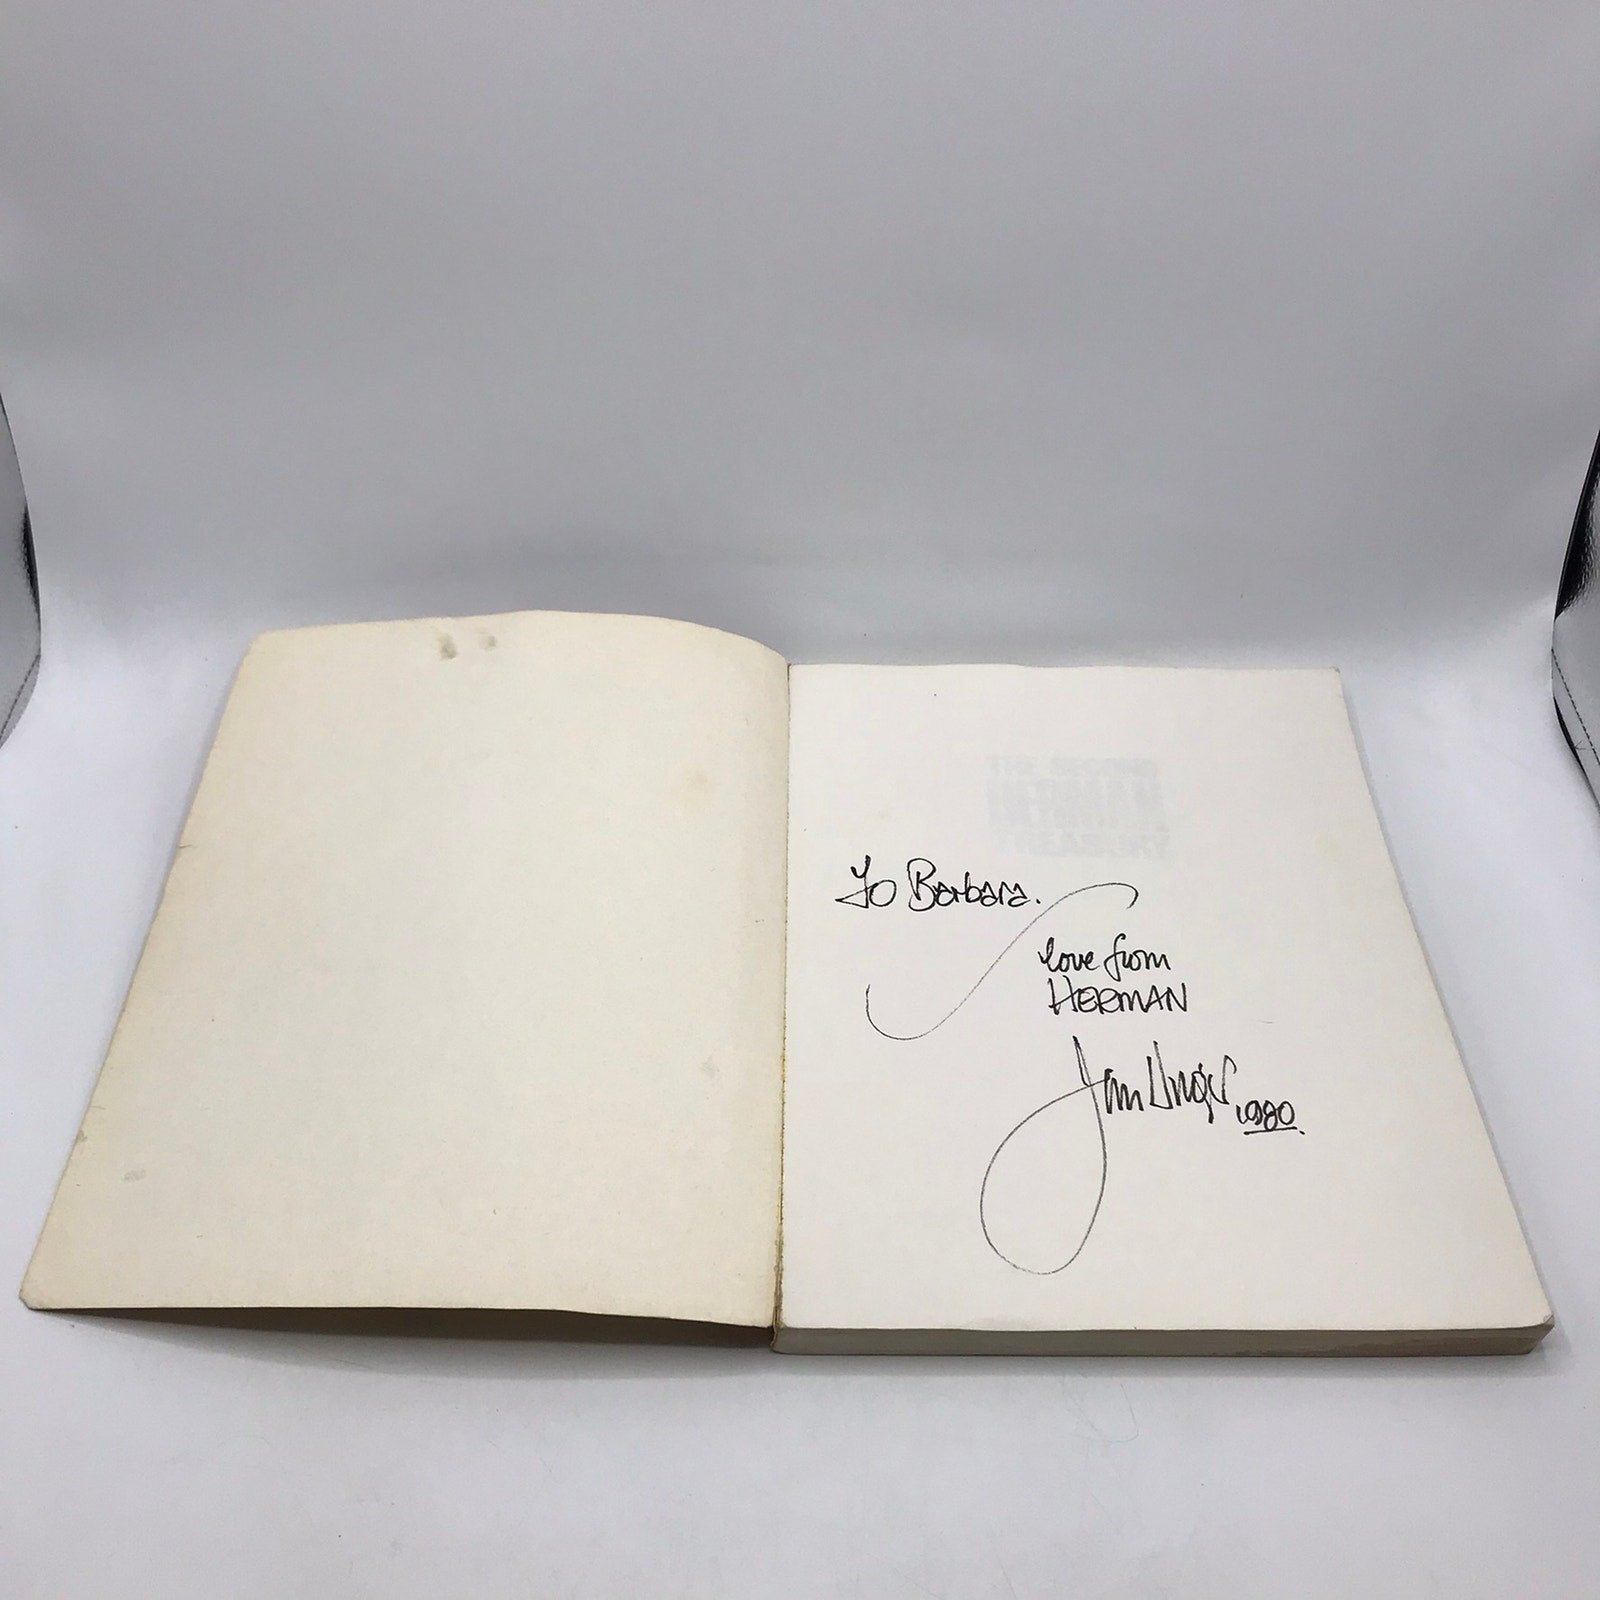 THE SECOND
HERMAN
TREASURY
To Barbara.
love from
HERMAN
Jim Unger 1980.